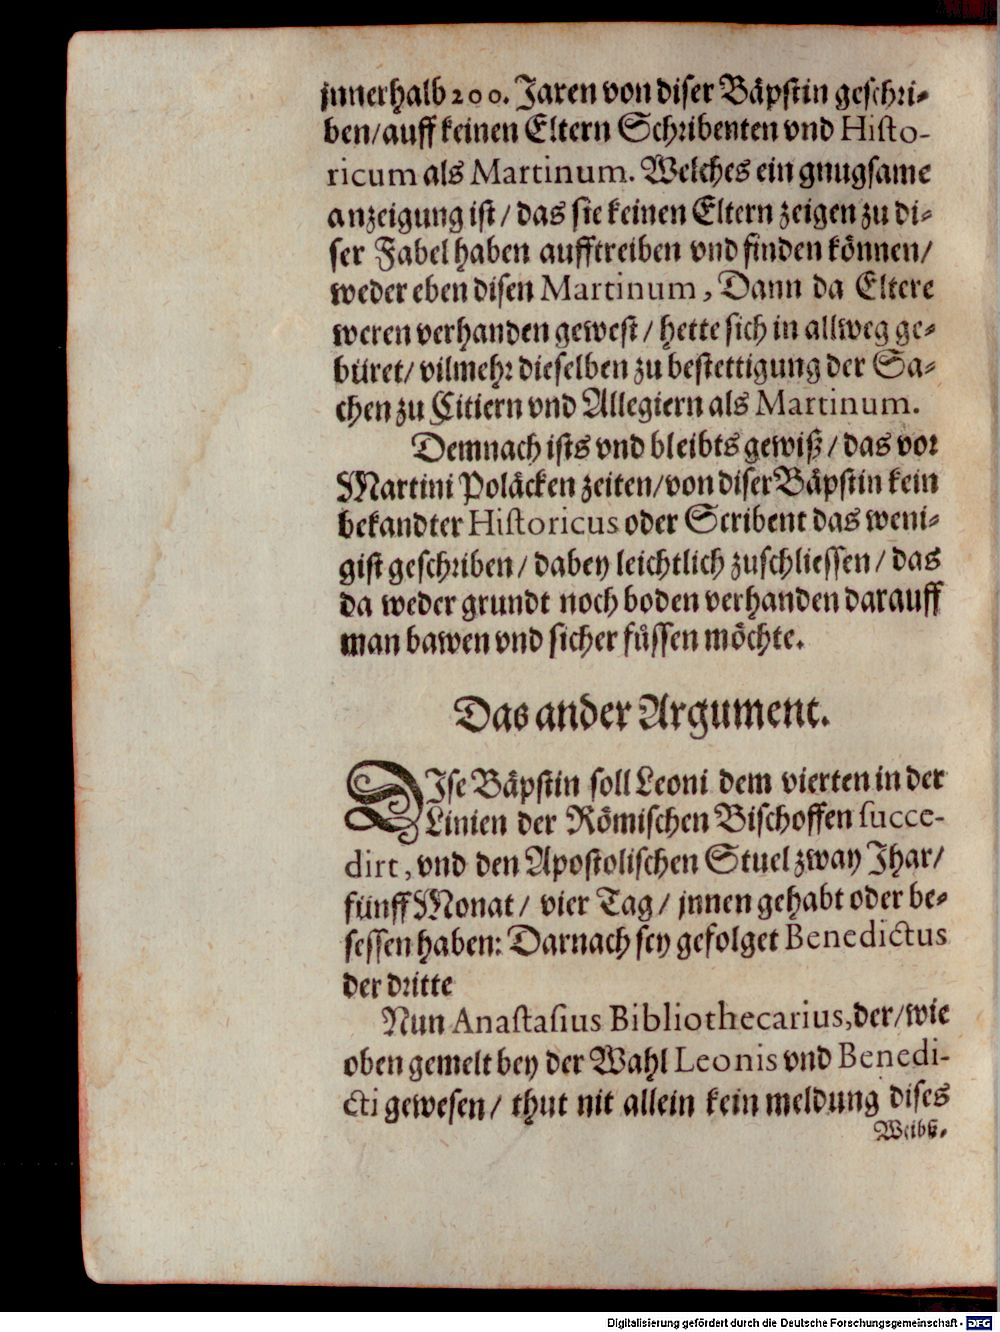 jnnerhalb 200. Jaren von diser Bäpstin geschri-
ben/auff keinen Eltern Schribenten vnd Histo-
ricum als Martinum. Welches ein gnugsame
anzeigung ist / das sie keinen Eltern zeigen zu di-
ser Fabel haben aufftreiben vnd finden können/
weder eben disen Martinum, Dann da Eltere
weren verhanden gewest / hette sich in allweg ge-
büret/ vilmehr dieselben zu bestettigung der Sa-
chen zu Citiern vnd Allegiern als Martinum.
Demnach ists vnd bleibts gewiß / das vor
Martini Poläcken zeiten/von diser Bäpstin kein
bekandter Historicus oder Scribent das weni-
gist geschriben / dabey leichtlich zuschliessen / das
da weder grundt noch boden verhanden darauff
man bawen vnd sicher füssen möchte.
Das ander Argument.
DIse Bäpstin soll Leoni dem vierten in der
Linien der Römischen Bischoffen succe-
dirt, vnd den Apostolischen Stuel zway Jhar/
fünff Monat / vier Tag / jnnen gehabt oder be-
sessen haben: Darnach sey gefolget Benedictus
der dritte
Nun Anastasius Bibliothecarius,der/wie
oben gemelt bey der Wahl Leonis vnd Benedi-
cti gewesen / thut nit allein kein meldung dises
Weibß-
Digitalisierung gefördert durch die Deutsche Forschungsgemeinschaft - DFG